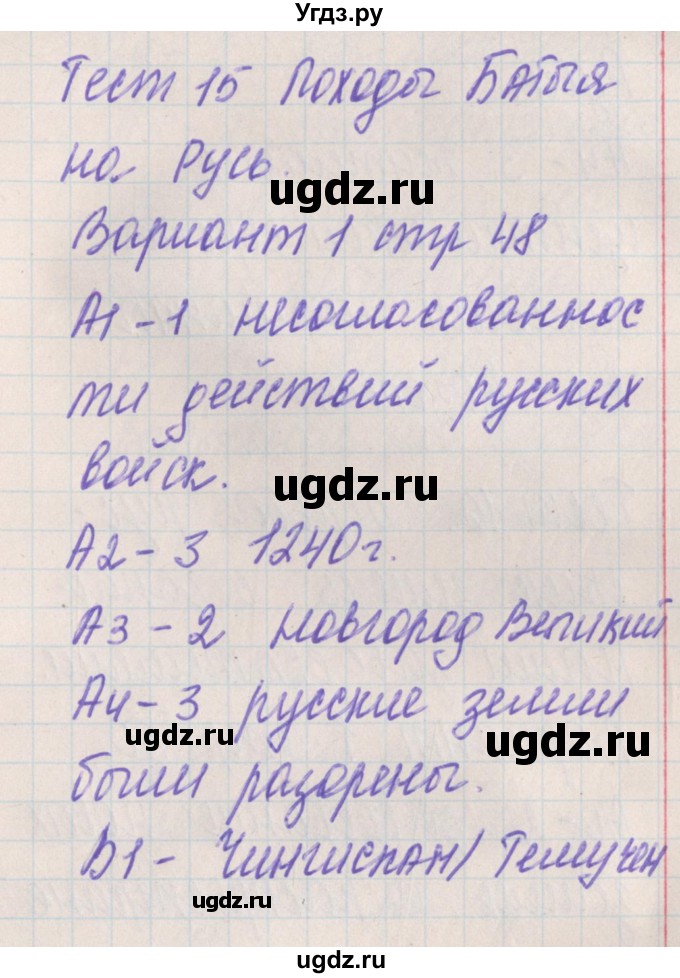 Угдз.ру
Тест 15 Походы Батыя
на Русь.
ugdz.ru
Вариант 1 стр 48
А1 - 1 несогласованнос
ти действий русских
войск.
ugdz.ru
А2 - 3 1240г.
А3 - 2 Новгород Великий
А4 - 3 русские земли
ugdz.ru
ugdz.ru
были разорены.
В1 - Чингисхан/ Темучен
ugdz.ru
ugdz.ru
ugdz.ru